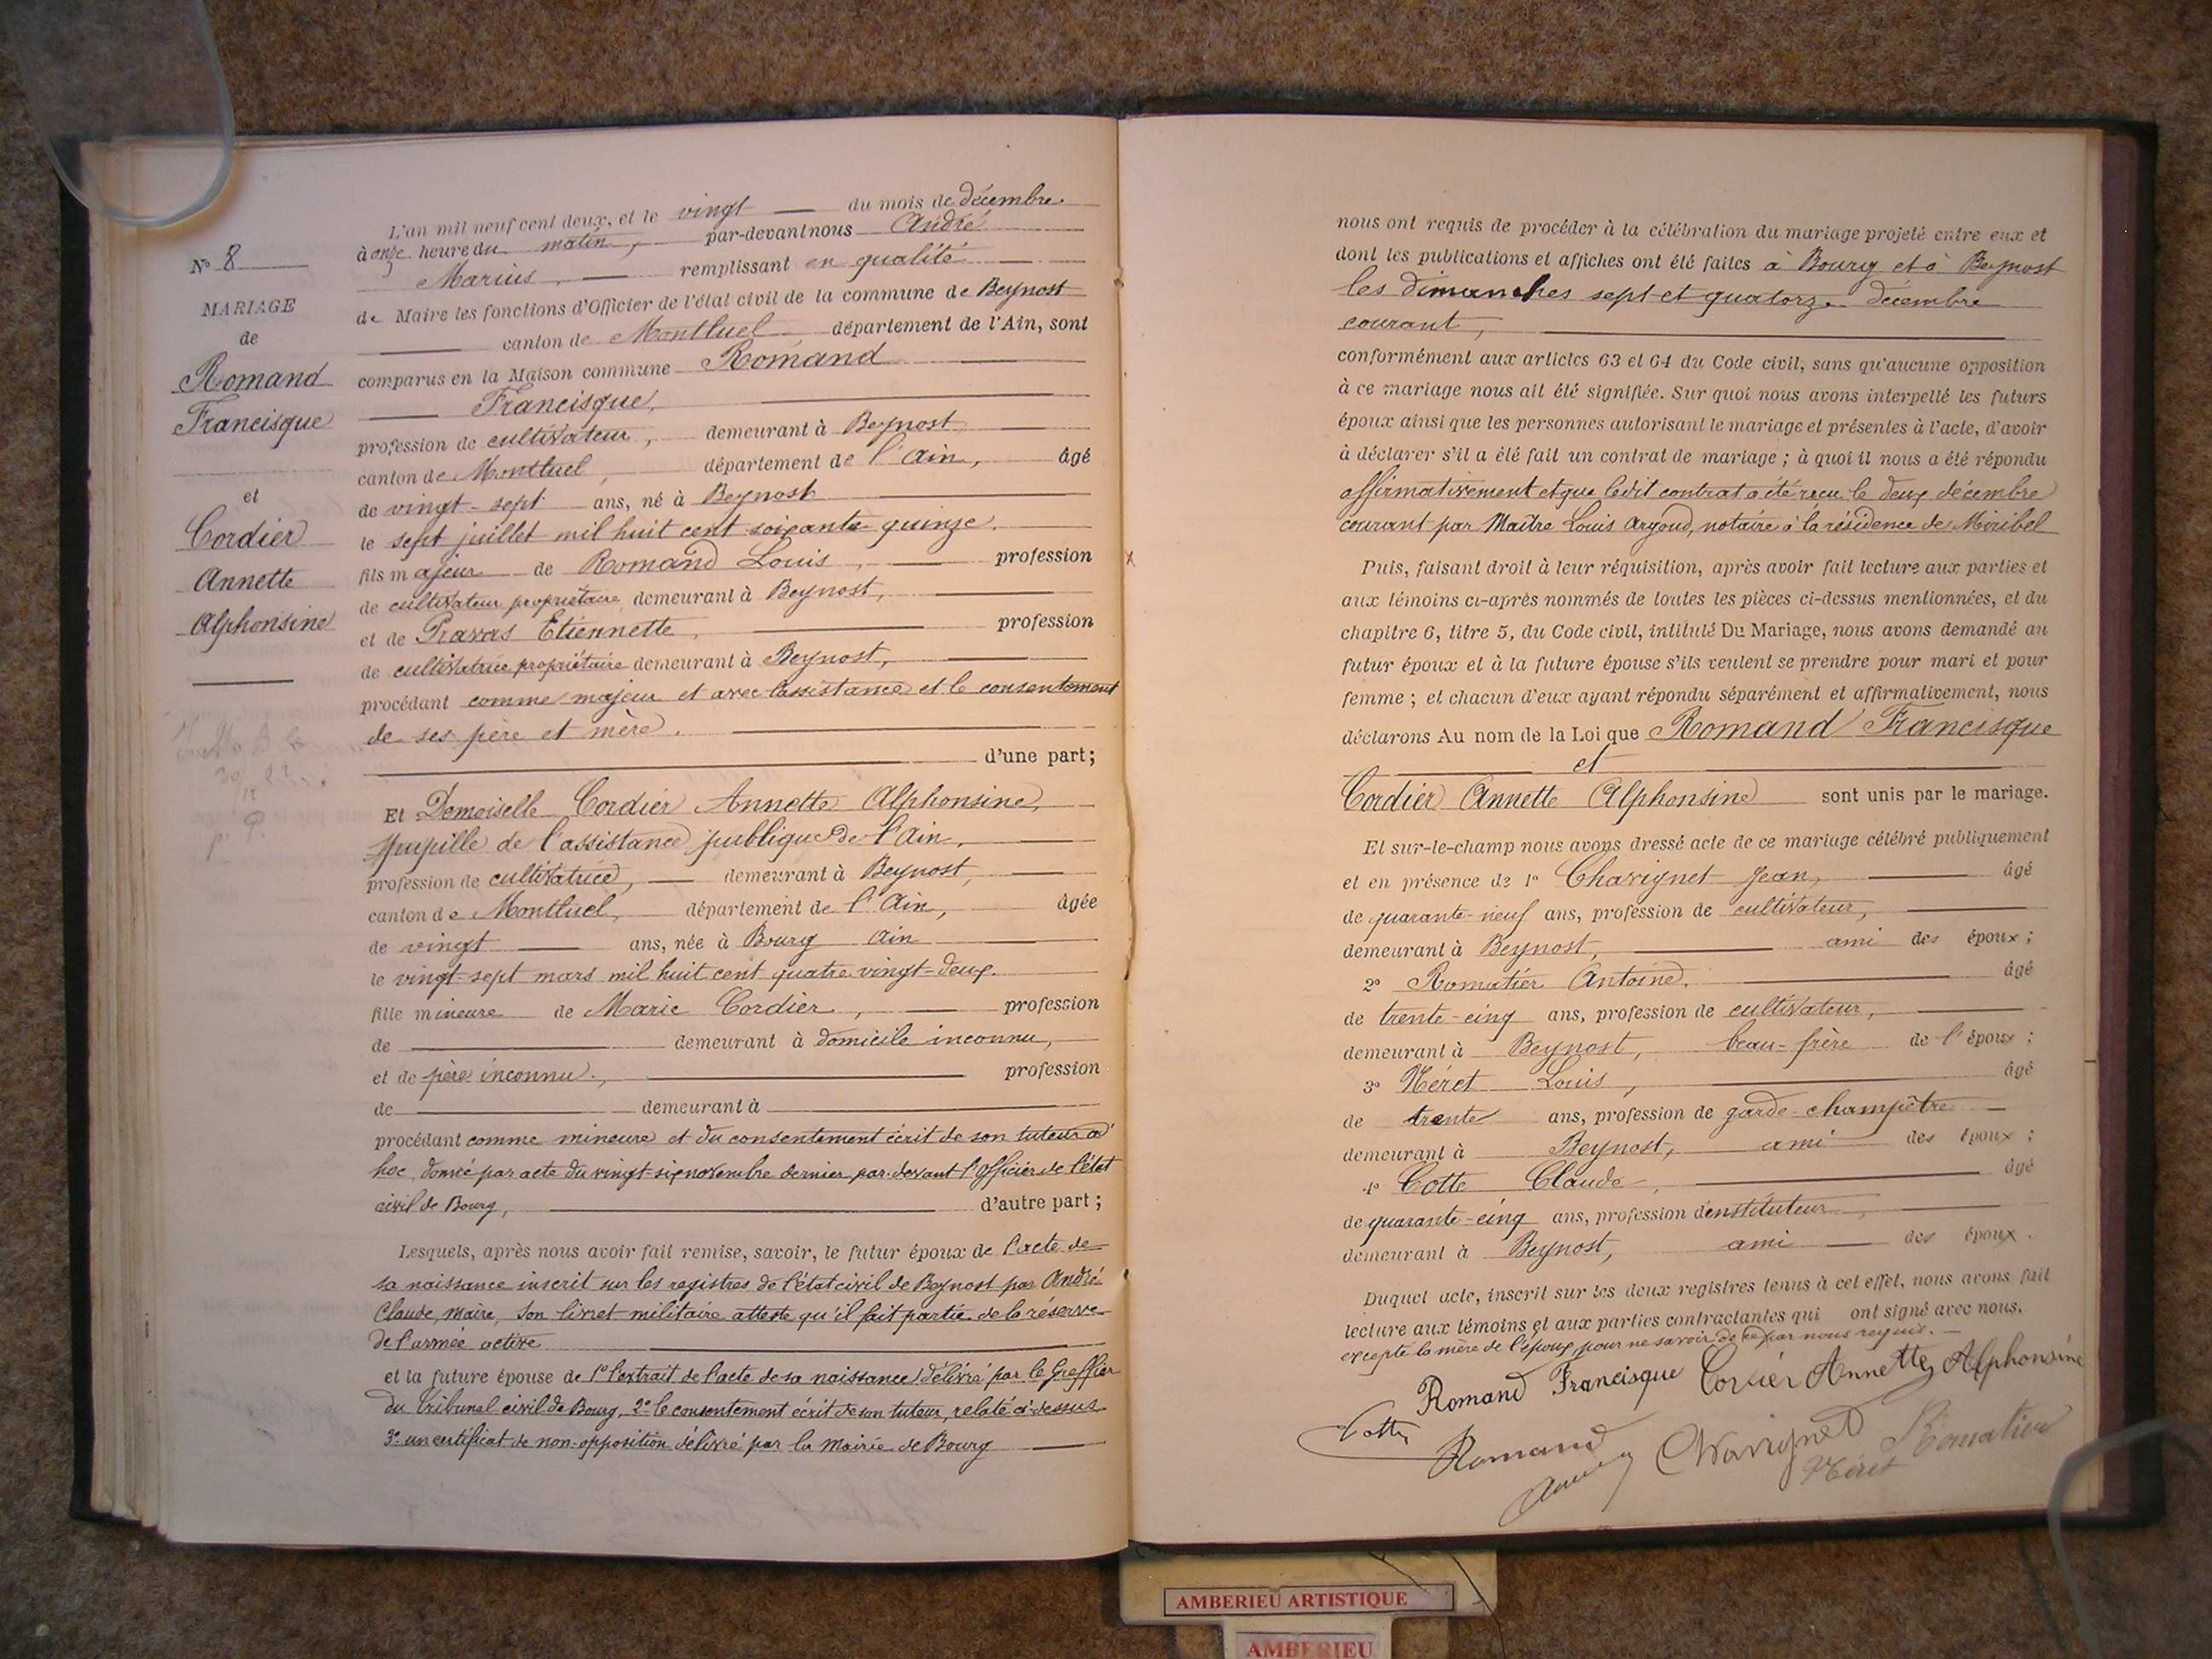 N° 8
MARIAGE
de
Romand
Francisque
et
Cordier
Annette
Alphonsine
L'an mil neuf cent deux, et le vingt du mois de décembre
à onze heure du matin, par-devant nous André
Marius, remplissant en qualité
de Maire les fonctions d'Officier de l'état civil de la commune de Beynost
canton de Montluel, département de l'Ain, sont
comparus en la Maison commune Romand
Francisque,
profession de cultivateur, demeurant à Beynost
canton de Montluel, département de l'Ain, âgé
de vingt-sept ans, né à Beynost
le sept juillet mil huit cent soixante quinze.
fils majeur de Romand Louis, profession
de cultivateur propriétaire demeurant à Beynost,
et de Pravas Etiennette, profession
de cultivatrice propriétaire demeurant à Beynost,
procédant comme majeur et avec l'assistance et le consentement
de ses père et mère.
d'une part;
Et Demoiselle Cordier Annette Alphonsine,
pupille de l'assistance publique de l'Ain,
profession de cultivatrice, demeurant à Beynost,
canton de Montluel, département de l'Ain, âgée
de vingt ans, née à Bourg Ain
le vingt-sept mars mil huit cent quatre vingt-deux.
fille mineure de Marie Cordier, profession
de demeurant à domicile inconnu,
et de père inconnu, profession
de demeurant à
procédant comme mineure et du consentement écrit de son tuteur ad
hoc, donné par acte du vingt-six novembre dernier par-devant l'officier de l'état
civil de Bourg, d'autre part;
Lesquels, après nous avoir fait remise, savoir, le futur époux de l'acte de
sa naissance inscrit sur les registres de l'état civil de Beynost par André
Claude, maire, son livret militaire atteste qu'il fait partie de la réserve
de l'armée active
et la future épouse de 1° l'extrait de l'acte de sa naissance délivré par le Greffier
du tribunal civil de Bourg, 2° le consentement écrit de son tuteur, relaté ci-dessus
3° un certificat de non-opposition délivré par la mairie de Bourg
nous ont requis de procéder à la célébration du mariage projeté entre eux et
dont les publications et affiches ont été faites à Bourg et à Beynost
les dimanches sept et quatorze décembre
courant,
conformément aux articles 63 et 64 du Code civil, sans qu'aucune opposition
à ce mariage nous ait été signifiée. Sur quoi nous avons interpellé les futurs
époux ainsi que les personnes autorisant le mariage et présentes à l'acte, d'avoir
à déclarer s'il a été fait un contrat de mariage ; à quoi il nous a été répondu
affirmativement et que ledit contrat a été reçu le deux décembre
courant par Maître Louis Argoud, notaire à la résidence de Miribel
Puis, faisant droit à leur réquisition, après avoir fait lecture aux parties et
aux témoins ci-après nommés de toutes les pièces ci-dessus mentionnées, et du
chapitre 6, titre 5, du Code civil, intitulé Du Mariage, nous avons demandé au
futur époux et à la future épouse s'ils veulent se prendre pour mari et pour
femme ; et chacun d'eux ayant répondu séparément et affirmativement, nous
déclarons Au nom de la Loi que Romand Francisque
et
Cordier Annette Alphonsine sont unis par le mariage.
Et sur-le-champ nous avons dressé acte de ce mariage célébré publiquement
et en présence de 1° Charignet Jean, âgé
de quarante-neuf ans, profession de cultivateur,
demeurant à Beynost, ami des époux ;
2° Romatier Antoine, âgé
de trente-cinq ans, profession de cultivateur,
demeurant à Beynost, beau-frère de l'époux ;
3° Méret Louis, âgé
de trente ans, profession de garde-champêtre
demeurant à Beynost, ami des époux ;
4° Cotte Claude, âgé
de quarante-cinq ans, profession d'instituteur,
demeurant à Beynost, ami des époux.
Duquel acte, inscrit sur les deux registres tenus à cet effet, nous avons fait
lecture aux témoins et aux parties contractantes qui ont signé avec nous.
excepté la mère de l'époux pour ne savoir de ce par nous requis.
Romand Francisque Cordier Annette Alphonsine
Cotte Romand Charignet Romatier
Méret
AMBERIEU ARTISTIQUE
AMBERIEU